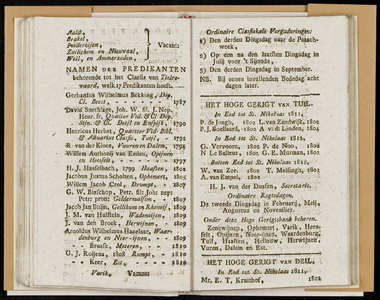 Aalst,
Brakel,
Poederoijen,
Zuilichem en Nieuwaal,
Well, en Ammerzoden,
Vacant:
NAMEN DER PREDIKANTEN
behoorende tot het Classis van Tielerwaard, welk 17 Predikanten heeft.
Gerhardus Wilhelmus Bekking, Dep.
Cl. Beest, 1787
David Snethlage, Joh. W. fl. J. Nep.
Hendricus Herbot, Quæstor
& Actuarius Classis, Tuil, 1792
R. van der Kloes, Vuuren en Dalem, 1793
Willem Anthonij van Zeelen, Opijnen
en Heesselt, 1797
H. J. Hasselbach, 1799 Haaften, 1802
Jacobus Justus Scholten, Ophemert, 1804
Willem Jacob Crol, Drumpt, 1807
G. W. Binschop, Pætr. fil. Joh: nep:
Petri pron: Geldermalsen, 1807
Jacob Jan Buijs, Gellicum en Rhenoij, 1809
J. M. van Hulstein, Wadenoijen, 1809
J. van den Broek, Herwijnen, 1809
Arnoldus Wilhelmus Hazeloar, Waardenburg en Neer-ijnen, 1809
Brusse, Meteren, 1810
G. J. Ruijens, 1808 Rumpt, 1810
Keer, Est, 1810
Varik, Vacant
Ordinaire Classikale Vergaderingen:
1) Den derden Dingsdag naar de Paaschweek,
2) Op een na den laatsten Dingsdag in
Julij voor 't Sijnode,
3) Den derden Dingsdag in September.
NB. Bij eenen invallenden Bededag acht
dagen later.
HET HOGE GERIGT van TUIL.
In Eed tot St. Nikolaas 1811,
P. de Jongh, 1801 L. van Zandwijk, 1802
P. J. Koellaard, 1802 A vi di Linden, 1804
In Eed tot St. Nikolaas 1812,
G. Vervoorn, 1805 P. de Noo, 1806
N. L. Balleur, 1801 G. E. Muraan, 1802
Buiten Eed tot St. Nikolaas 1811,
W. van Zee, 1802 T. Melsingh, 1802
A. van Empel, 1802
H. J. van der Dussen, Secretaris.
Ordinaire Regtsdagen.
De tweede Dingsdag in Februarij, Meij,
Augustus en November.
Onder deze Hoge Gerigtsbank behoren.
Zennewijnen, Ophemert, Varik, Heesselt, Opijnen, Neer-ijnen, Waardenburg,
Tuil, Haaften, Hellouw, Herwijnen,
Vuren, Dalem en Est.
HET HOGE GERIGT van DEIL.
In Eed tot St. Nikolaas 1811,
Mr. E. T. Kruithof, 1802